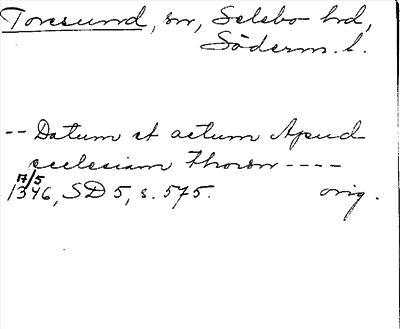 Toresund, sn, Selebo hd,
Söderm. l.
-- Datum et actum Apud
ecclesiam Thorsn ----
17/5
1346, SD 5, s. 575. orig.